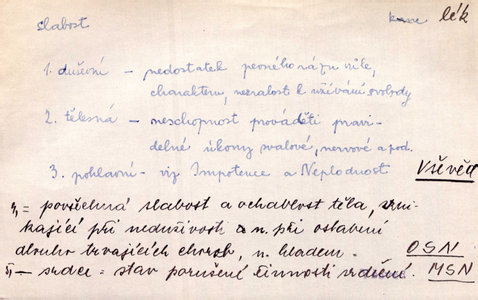 slabost lék
1. duševní – nedostatek pevného rázu vůle,
charakteru, nezralost k užívání svobody
2. tělesná – neschopnost prováděti pravi-
delné úkony svalové, nervové a pod.
3. pohlavní – viz Impotence a Neplodnost
Vševěd
= povšechná slabost a ochablost těla, vzni-
kající při neduživosti a n. při oslabení
dlouho trvajících chorob, n. hladem.
OSN
– srdce = stav porušené činnosti srdečné. MSN